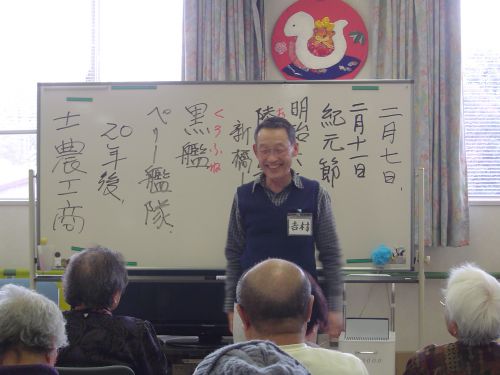 二月七日、
二月十一日
紀元節
明治
陸
新橋
くろふね
黒艦
ペリー艦隊.
20年後、
士農工商
吉村